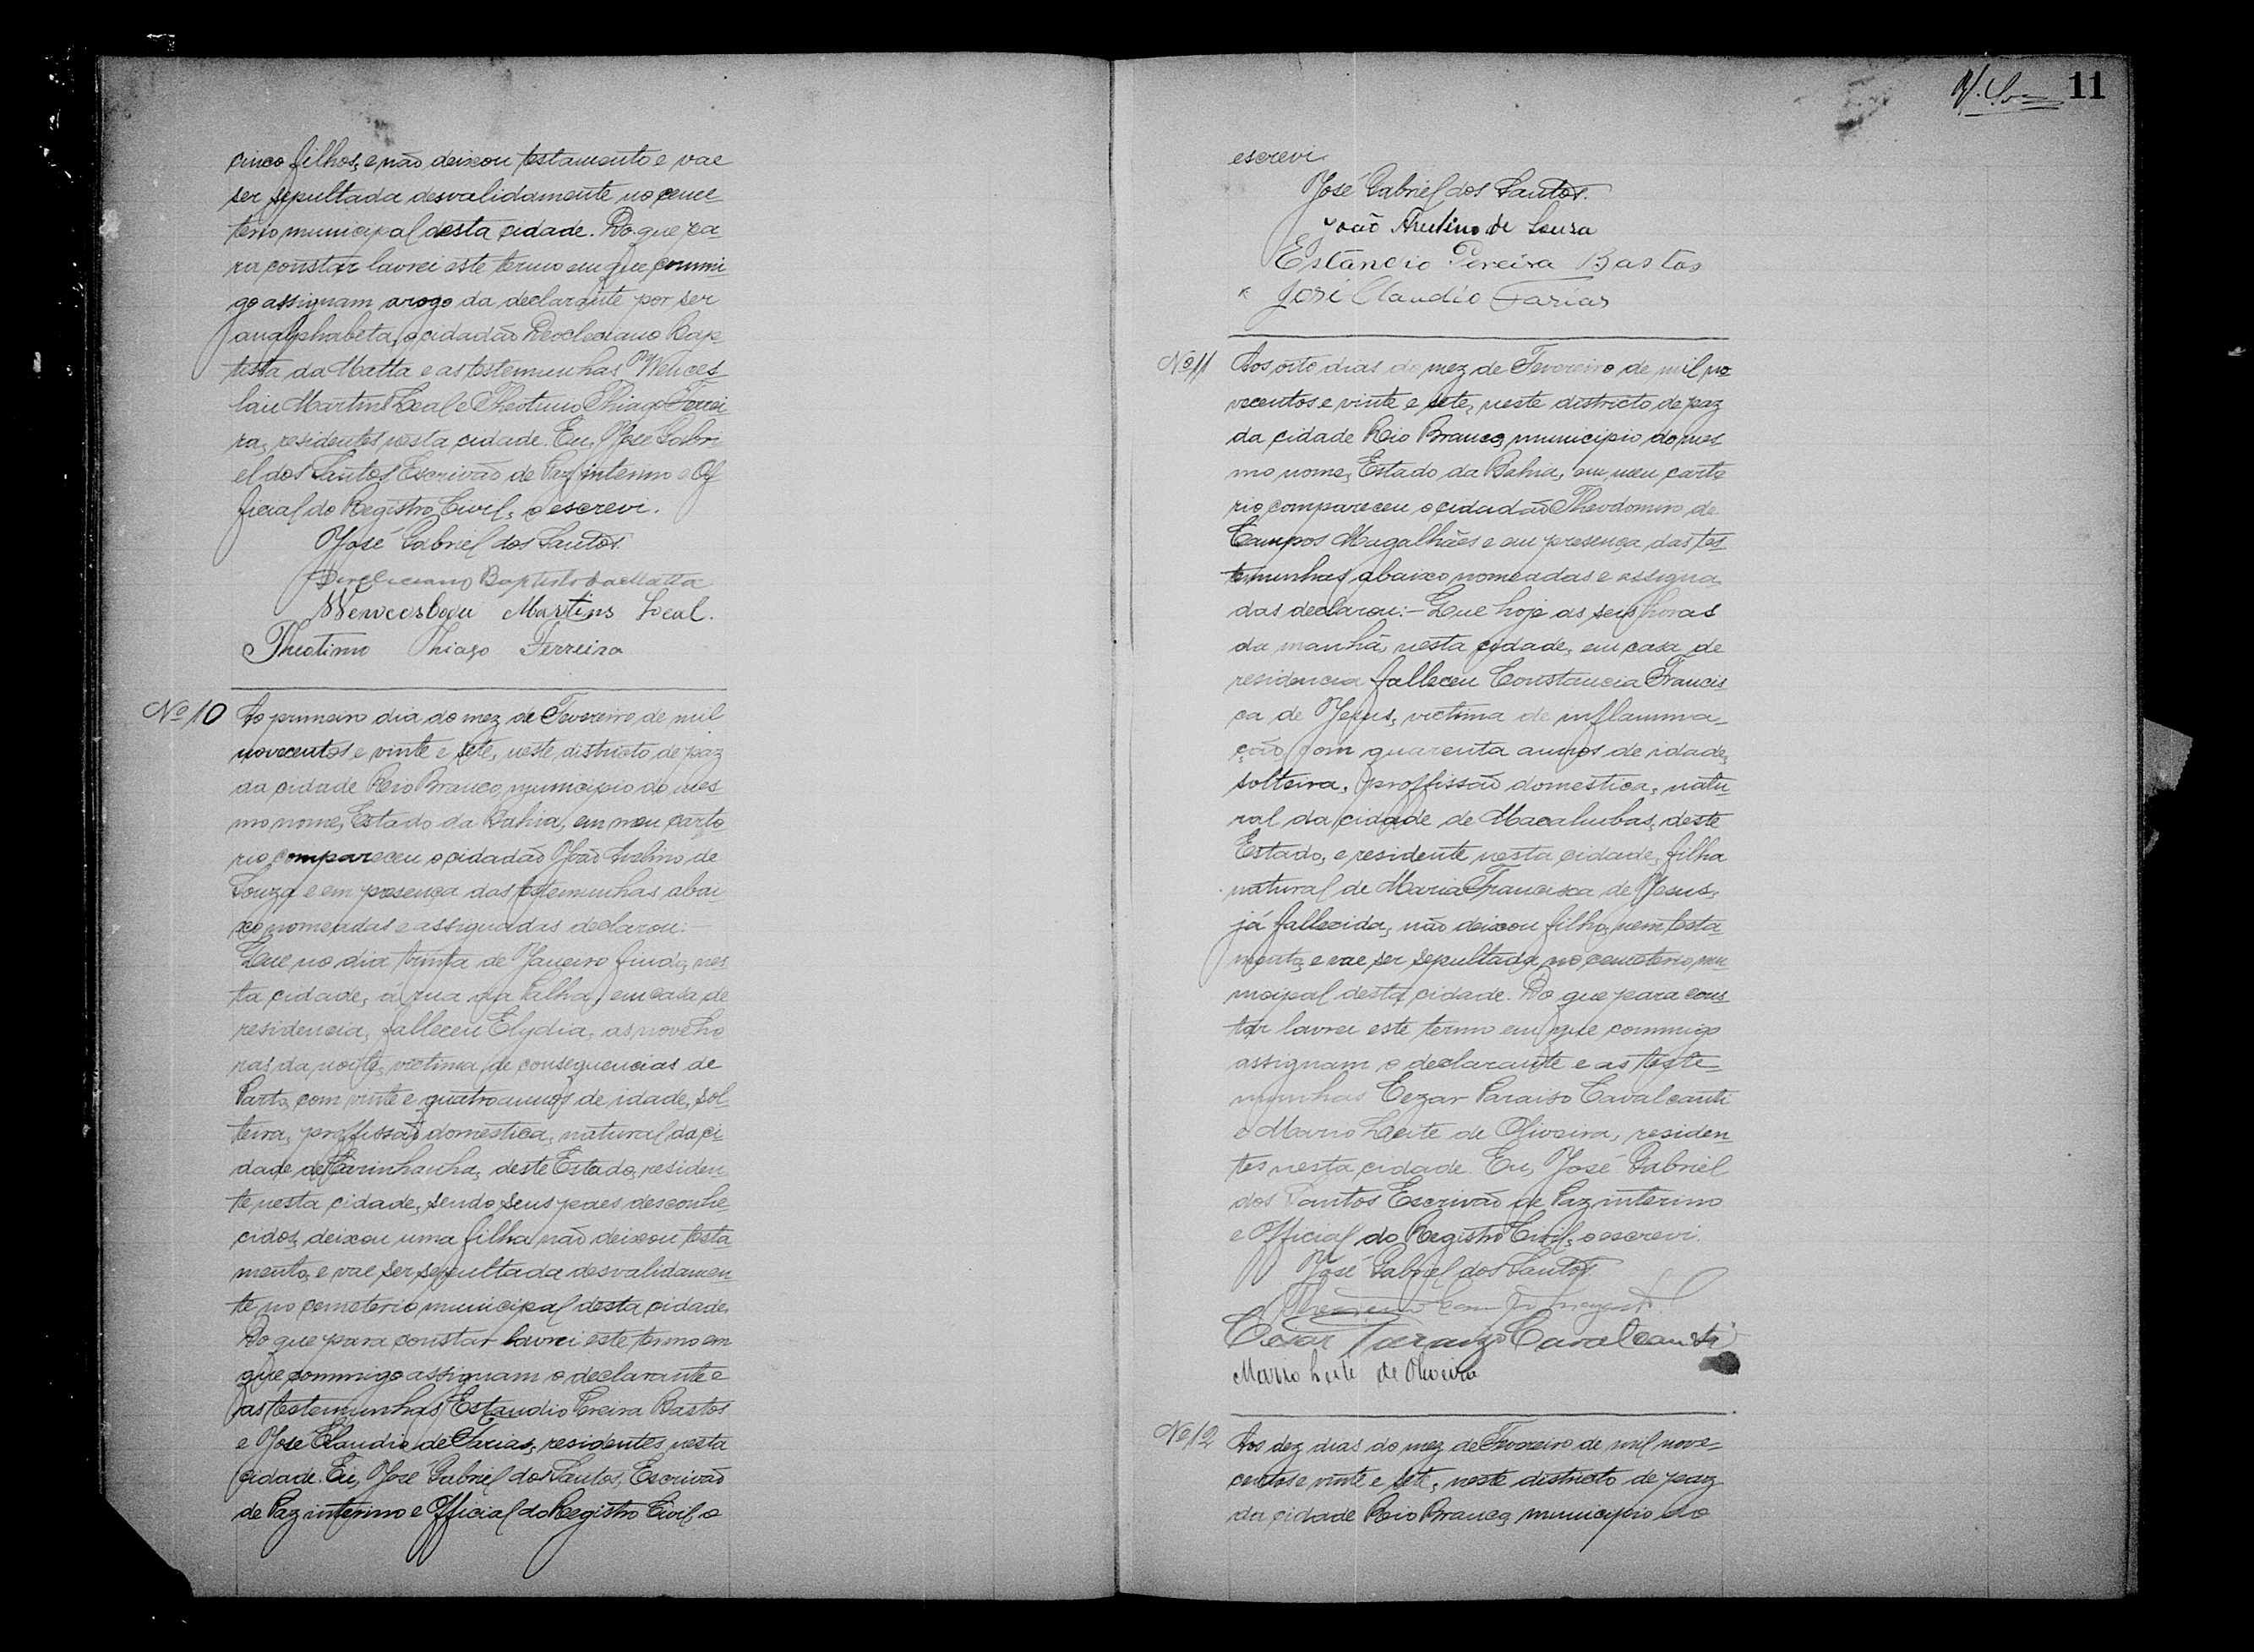 cinco filhos, e não deixou testamento e vae
ser sepultada desvalidamente no ceme-
terio municipal desta cidade. Do que pa-
ra constar lavrei este termo em que commi-
go assignam arogo da declarante por ser
analphabeta, o cidadão Deocleciano Bap-
tista da Matta e as testemunhas Wences-
lau Martins Leal e Theotimo Thiago Ferrei-
ra, residentes nesta cidade. Eu, José Gabri-
el dos Santos Escrivão de Paz interino e Of-
ficial do Registro Civil, o escrevi.
José Gabriel dos Santos
Deocleciano Baptista da Matta
Wenceslau Martins Leal.
Theotimo Thiago Ferreira
Nº 10 Ao primeiro dia do mez de Fevereiro de mil
novecentos e vinte e sete, neste districto de paz
da cidade Rio Branco, municipio do mes-
mo nome, Estado da Bahia, em meu carto-
rio compareceu o cidadão João Avelino de
Souza e em presença das testemunhas abai-
xo nomeadas e assignadas declarou:-
Que no dia trinta de Janeiro findo, nes-
ta cidade, á rua da Palha, em casa de
residencia, falleceu Elydia, as nove ho-
ras da noite, victima de consequencias de
Parto, com vinte e quatro annos de idade, sol-
teira, proffissão domestica, natural da ci-
dade de Carinhanha, deste Estado, residen-
te nesta cidade, sendo seus paes desconhe-
cidos, deixou uma filha não deixou testa-
mento, e vae ser sepultada desvalidamen-
te no cemeterio municipal desta cidade.
Do que para constar lavrei este termo em
que commigo assignam o declarante e
as testemunhas Estaudio Pereira Bastos
e José Claudio de Farias, residentes nesta
cidade. Eu, José Gabriel dos Santos, Escrivão
de Paz interino e Official do Registro Civil o
11
escrevi.
José Gabriel dos Santos.
João Avelino de Souza
Estáncio Pereira Bastos
José Claudio Farias
Nº 11 Aos oito dias do mez de Fevereiro de mil no-
vecentos e vinte e sete, neste districto de paz
da cidade Rio Branco, municipio do mes-
mo nome, Estado da Bahia, em meu carto-
rio compareceu o cidadão Theodomiro de
Campos Magalhães e em presença das tes-
temunhas abaixo nomeadas e assigna-
das declarou:- Que hoje as seis horas
da manhã, nesta cidade, em casa de
residencia falleceu Constancia Francis-
ca de Jesus, victima de inflamma-
ção, com quarenta annos de idade,
solteira, proffissão domestica, natu-
ral da cidade de Macahubas, deste
Estado, e residente nesta cidade, filha
natural de Maria Francisca de Jesus,
já fallecida, não deixou filho, nem testa-
mento, e vae ser sepultada no cemeterio mu-
nicipal desta cidade. Do que para cons-
tar lavrei este termo em que commigo
assignam o declarante e as teste-
munhas Cezar Paraiso Cavalcanti
e Mario Leite de Oliveira, residen-
tes nesta cidade. Eu, José Gabriel
dos Santos Escrivão de Paz interino
e Official do Registro Civil, o escrevi.
José Gabriel dos Santos
Cezar Paraizo Cavalcanti
Mario Leite de Oliveira
Nº 12 Aos dez dias do mez de Fevereiro de mil nove-
centos e vinte e sete, neste districto de paz
da cidade Rio Branco, municipio do